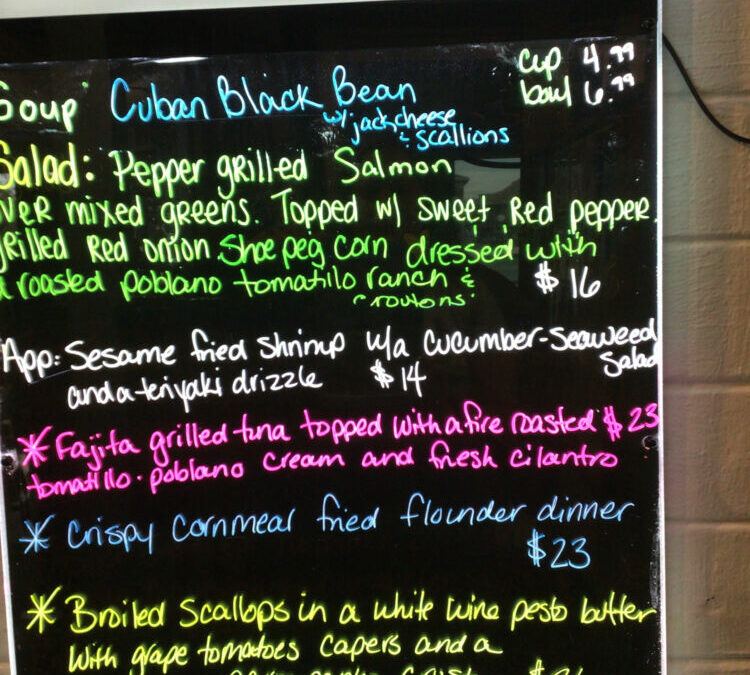 Soup Cuban Black Bean cup 4.99
w/ jack cheese bowl 6.99
& scallions
Salad: Pepper grilled Salmon
over mixed greens. Topped w/ sweet, Red pepper,
grilled Red onion Shoe peg corn dressed with
a roasted poblano tomatilo ranch & $16
croutons
App: Sesame fried shrimp w/a cucumber-seaweed
Salad
and a teriyaki drizzle $14
* Fajita grilled tuna topped with a fire roasted $23
tomatillo-poblano cream and fresh cilantro
* Crispy cornmeal fried flounder dinner
$23
* Broiled Scallops in a white wine pesto butter
with grape tomatoes capers and a